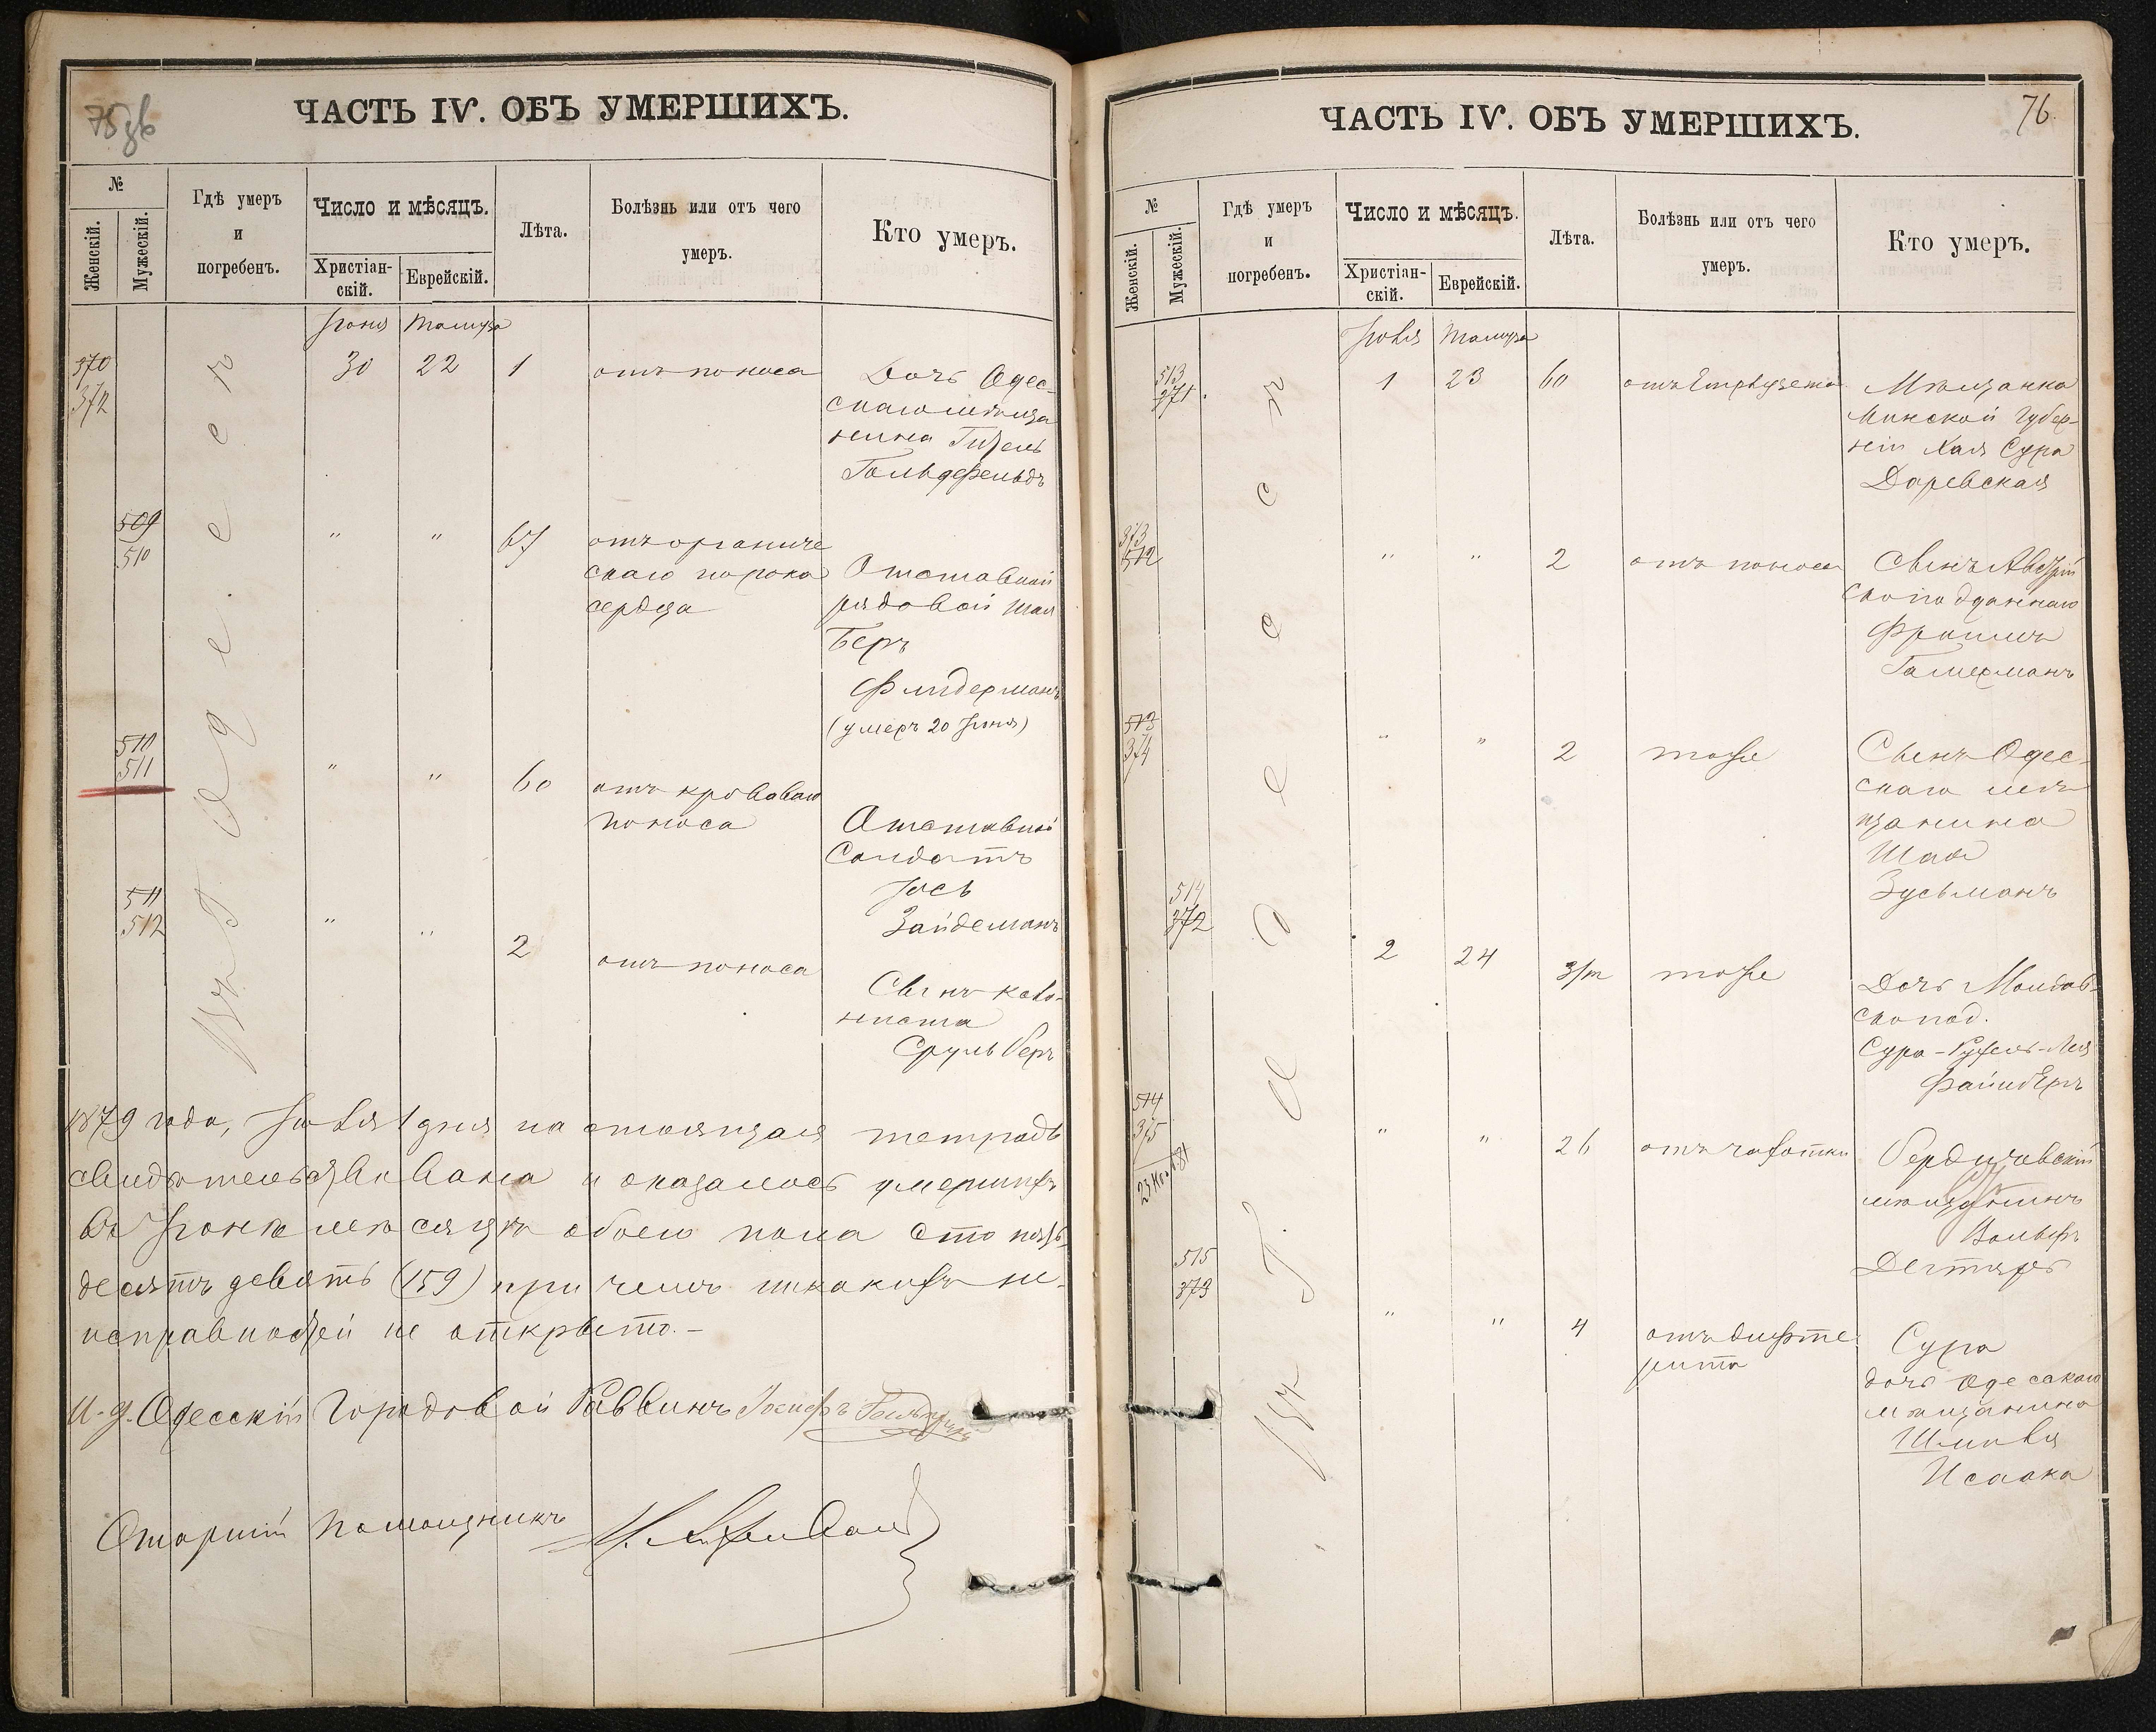 75 об
ЧАСТЬ IV. ОБЪ УМЕРШИХЪ.
№
Женскій.
Мужескій.
Гдѣ умеръ
и
погребенъ.
Число и мѣсяцъ.
Христіан-
скій.
Еврейскій.
Лѣта.
Болѣзнь или отъ чего
умеръ.
Кто умеръ.
Іюня Тамуза
370
372
30 22 1 отъ поноса
Дочь Одес-
скаго мѣща
нина Гизель
Гольдфельдъ
509
510
" " 67 отъ органиче
скаго порока
сердца
Отставной
рядовой Шая
Беръ
Флидерманъ
(умеръ 20 Іюня)
510
511
" " 60 отъ кроваваго
поноса
Отставной
Солдатъ
Іось
Зайдеманъ
511
512
" " 2 отъ поноса
Сынъ коло-
ниста
Сруль Беръ
Въ г. Одессѣ
1879 года, Іюля 1 дня настоящая тетрадь
свидѣтельствована и оказалось умершихъ
въ Іюнѣ мѣсяцѣ обоего пола сто пять-
десятъ девять (159) при чемъ никакихъ не-
исправностей не открыто.-
И. д. Одесскій Городовой Раввинъ Іосифъ
Старшій Помощникъ
76.
ЧАСТЬ IV. ОБЪ УМЕРШИХЪ.
№
Женскій.
Мужескій.
Гдѣ умеръ
и
погребенъ.
Число и мѣсяцъ.
Христіан-
скій.
Еврейскій.
Лѣта.
Болѣзнь или отъ чего
умеръ.
Кто умеръ.
Іюля Тамуза
513
371.
1 23 60
Мѣщанка
Минской Губер-
ніи Хая Сура
Доревская
373
512
" " 2 отъ поноса
Сынъ Австрій
скоподданнаго
Фроимъ
Гамерманъ
513
374
" " 2 тоже
Сынъ Одес-
скаго мѣ-
щанина
Шая
Зусьманъ
514
372
2 24 3/m тоже
Дочь Молдав-
скопод.
Сура-Рухель-Лея
Файнберъ
514
375
" " 26 отъ чахотки
Бердичевскій
мѣщанинъ
Вольфъ
Дегтяръ
515
373
" " 4 отъ дифте
рита
Сура
дочь Одесскаго
мѣщанина
Шмовля
Исаака
Въ г. Одессѣ